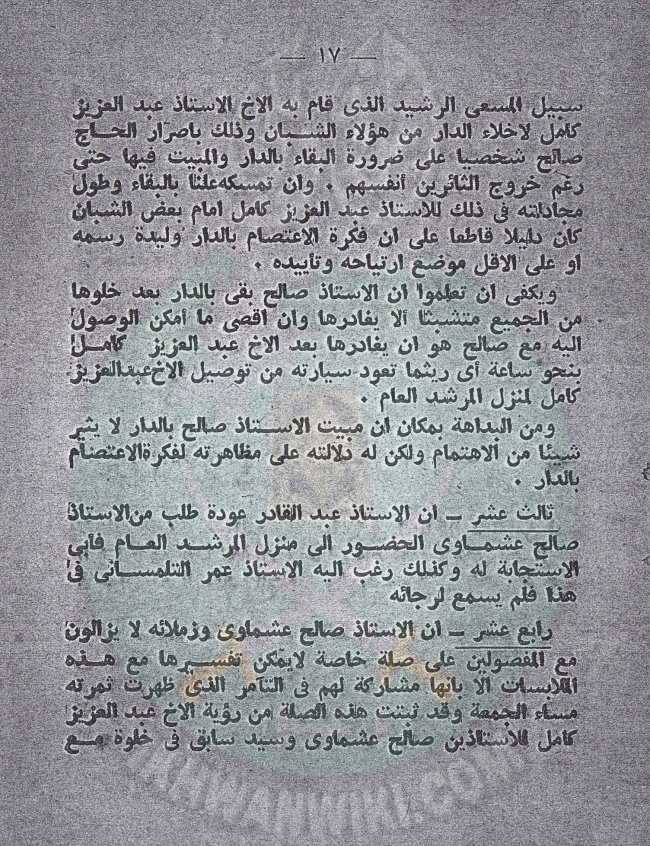 — ١٧ —
سبيل المسعى الرشيد الذى قام به الاخ الاستاذ عبد العزيز
كامل لاخلاء الدار من هؤلاء الشبان وذلك باصرار الحاج
صالح شخصيا على ضرورة البقاء بالدار والمبيت فيها حتى
رغم خروج الثائرين أنفسهم ٠ وان تمسكه علنا بالبقاء وطول
مجادلته فى ذلك للاستاذ عبد العزيز كامل امام بعض الشبان
كان دليلا قاطعا على ان فكرة الاعتصام بالدار وليدة رسمه
او على الاقل موضع ارتياحه وتأييده ٠
ويكفى ان تعلموا ان الاستاذ صالح بقى بالدار بعد خلوها
من الجميع متشبثا ألا يغادرها وان اقصى ما أمكن الوصول
اليه مع صالح هو ان يغادرها بعد الاخ عبد العزيز كامل
بنحو ساعة أى ريثما تعود سيارته من توصيل الاخ عبدالعزيز
كامل لمنزل المرشد العام ٠
ومن البداهة بمكان ان مبيت الاستاذ صالح بالدار لا يثير
شيئا من الاهتمام ولكن له دلالته على مظاهرته لفكرة الاعتصام
بالدار ٠
ثالث عشر — ان الاستاذ عبد القادر عودة طلب من الاستاذ
صالح عشماوى الحضور الى منزل المرشد العام فأبى
الاستجابة له وكذلك رغب اليه الاستاذ عمر التلمسانى فى
هذا فلم يسمع لرجائه
رابع عشر — ان الاستاذ صالح عشماوى وزملائه لا يزالون
مع المفصولين على صلة خاصة لايمكن تفسيرها مع هذه
الملابسات الا بأنها مشاركة لهم فى التآمر الذى ظهرت ثمرته
مساء الجمعة وقد ثبتت هذه الصلة من رؤية الاخ عبد العزيز
كامل للاستاذين صالح عشماوى وسيد سابق فى خلوة مع
IKHWANWIKI.COM